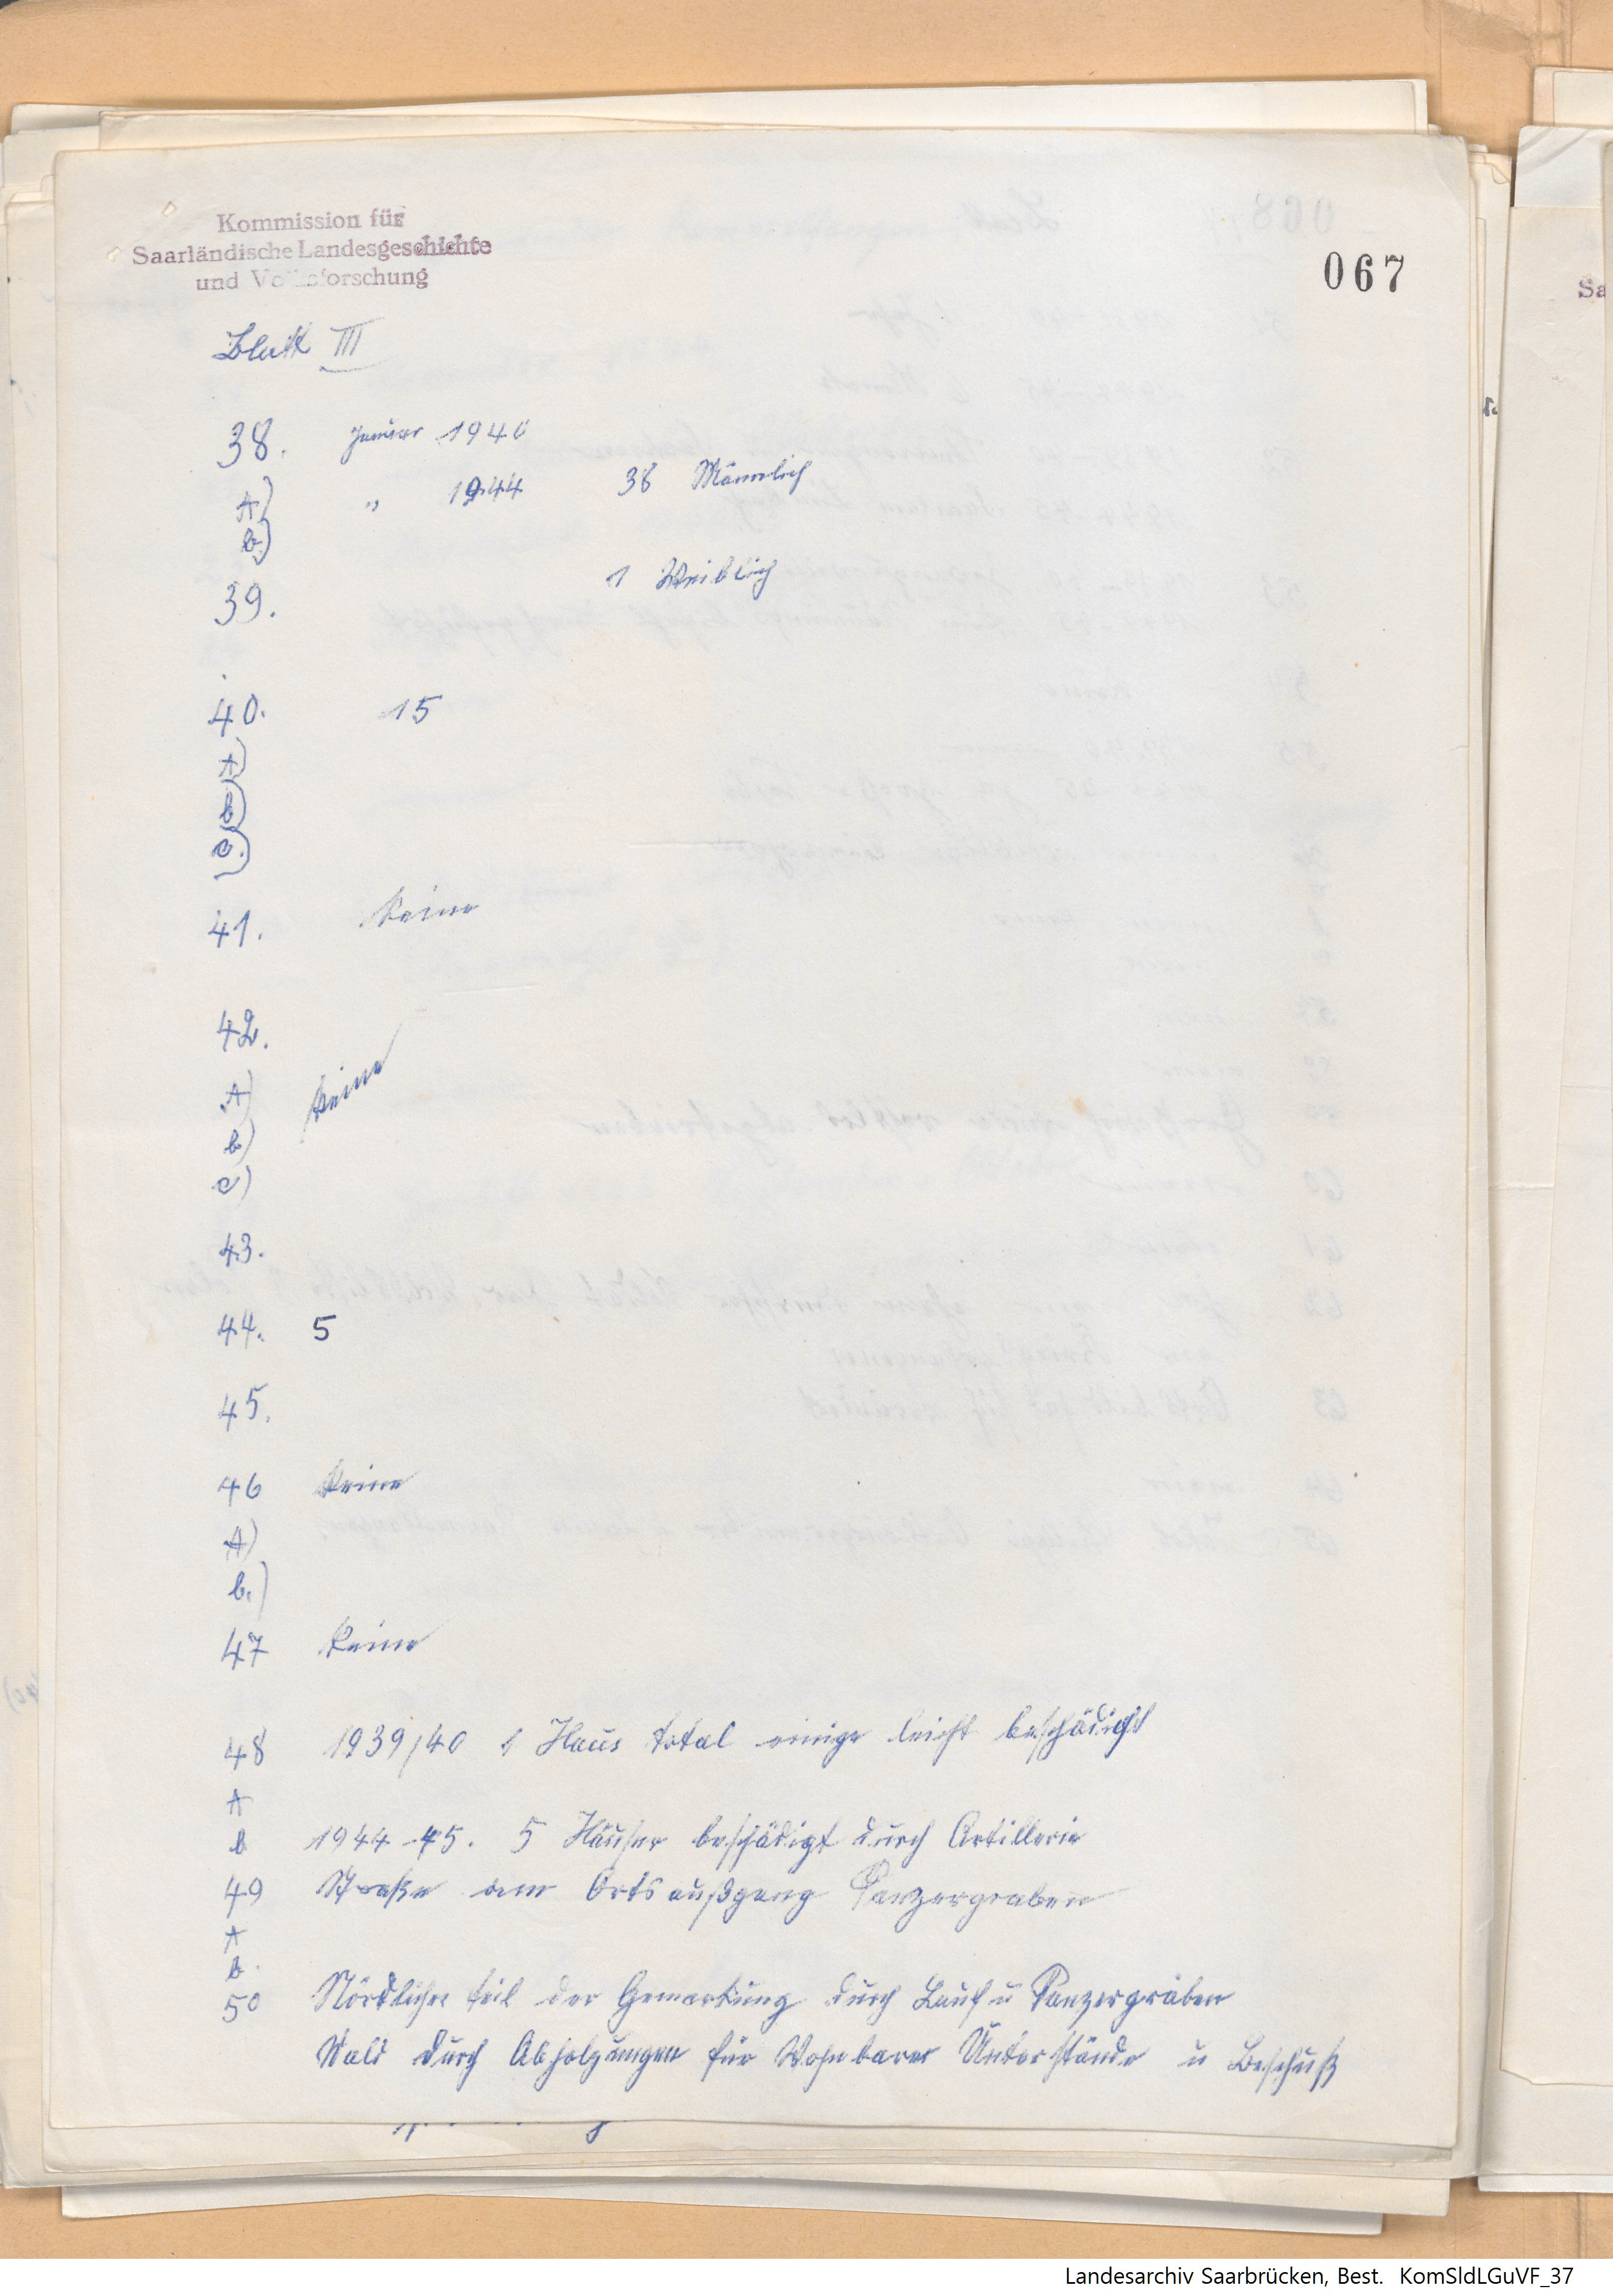 Kommission für
Saarländische Landesgeschichte
und Volksforschung
067
Blatt III
38. Januar 1940
A) " 1944 38 Männlich
b)
1 Weiblich
39.
40. 15
A)
b)
c.)
41. Keine
42.
A) Keine
b)
c)
43.
44. 5
45.
46 Keine
A)
b.)
47 Keine
48 1939/40 1 Haus total einige leicht beschädigt
A
b 1944-45. 5 Häuser beschädigt durch Artillerie
49 Straße am Ortsaußgang Panzergraben
A
b.
50 Nördlicher Teil der Gemarkung durch Lauf u Panzergräben
Wald durch Abholzungen für Wohnbarer Unterstände u Beschuß
Landesarchiv Saarbrücken, Best. KomSldLGuVF_37